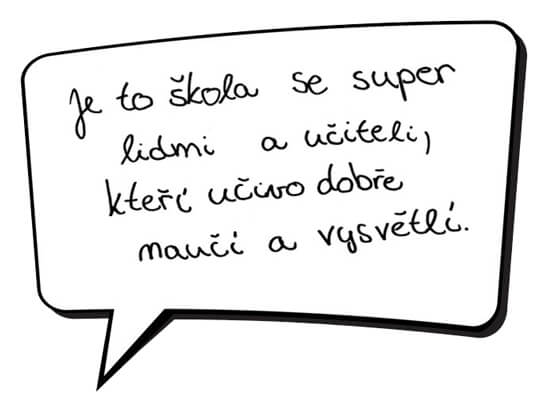 Je to škola se super
lidmi a učiteli,
kteří učivo dobře
naučí a vysvětlí.